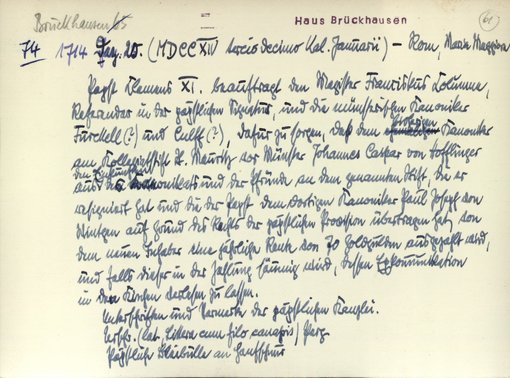 Brückhausen 65
II
Haus Brückhausen
61
74 1714 Jan. 20. (MDCCXIV tercio decimo Kal. Januarii) – Rom, Maria Maggiore
Papst Klemens XI. beauftragt den Magister Franziskus Columna,
Referendar in der päpstlichen Signatur, und die münsterischen Kanoniker
Furckell (?) und Culff (?), dafür zu sorgen, daß dem bisherigen Kanoniker
am Kollegiatstift St. Mauritz vor Münster Johannes Caspar von
aus den Einkünften des Kanonikats und der Pfründe an dem genannten Stift, die er
resigniert hat und die der Papst dem dortigen Kanoniker Paul Joseph von
Wintgen auf Grund des Rechts der päpstlichen Provision übertragen hat, von
dem neuen Inhaber eine jährliche Rente von 70 Goldgulden ausgezahlt wird,
und falls dieser in der Zahlung säumig wird, dessen Exkommunikation
in den Kirchen verlesen zu lassen.
Unterschriften und Vermerke der päpstlichen Kanzlei.
Urschr. (lat. Littera cum filo canapis) Perg.
Päpstliche Bleibulle an Hanfschnur